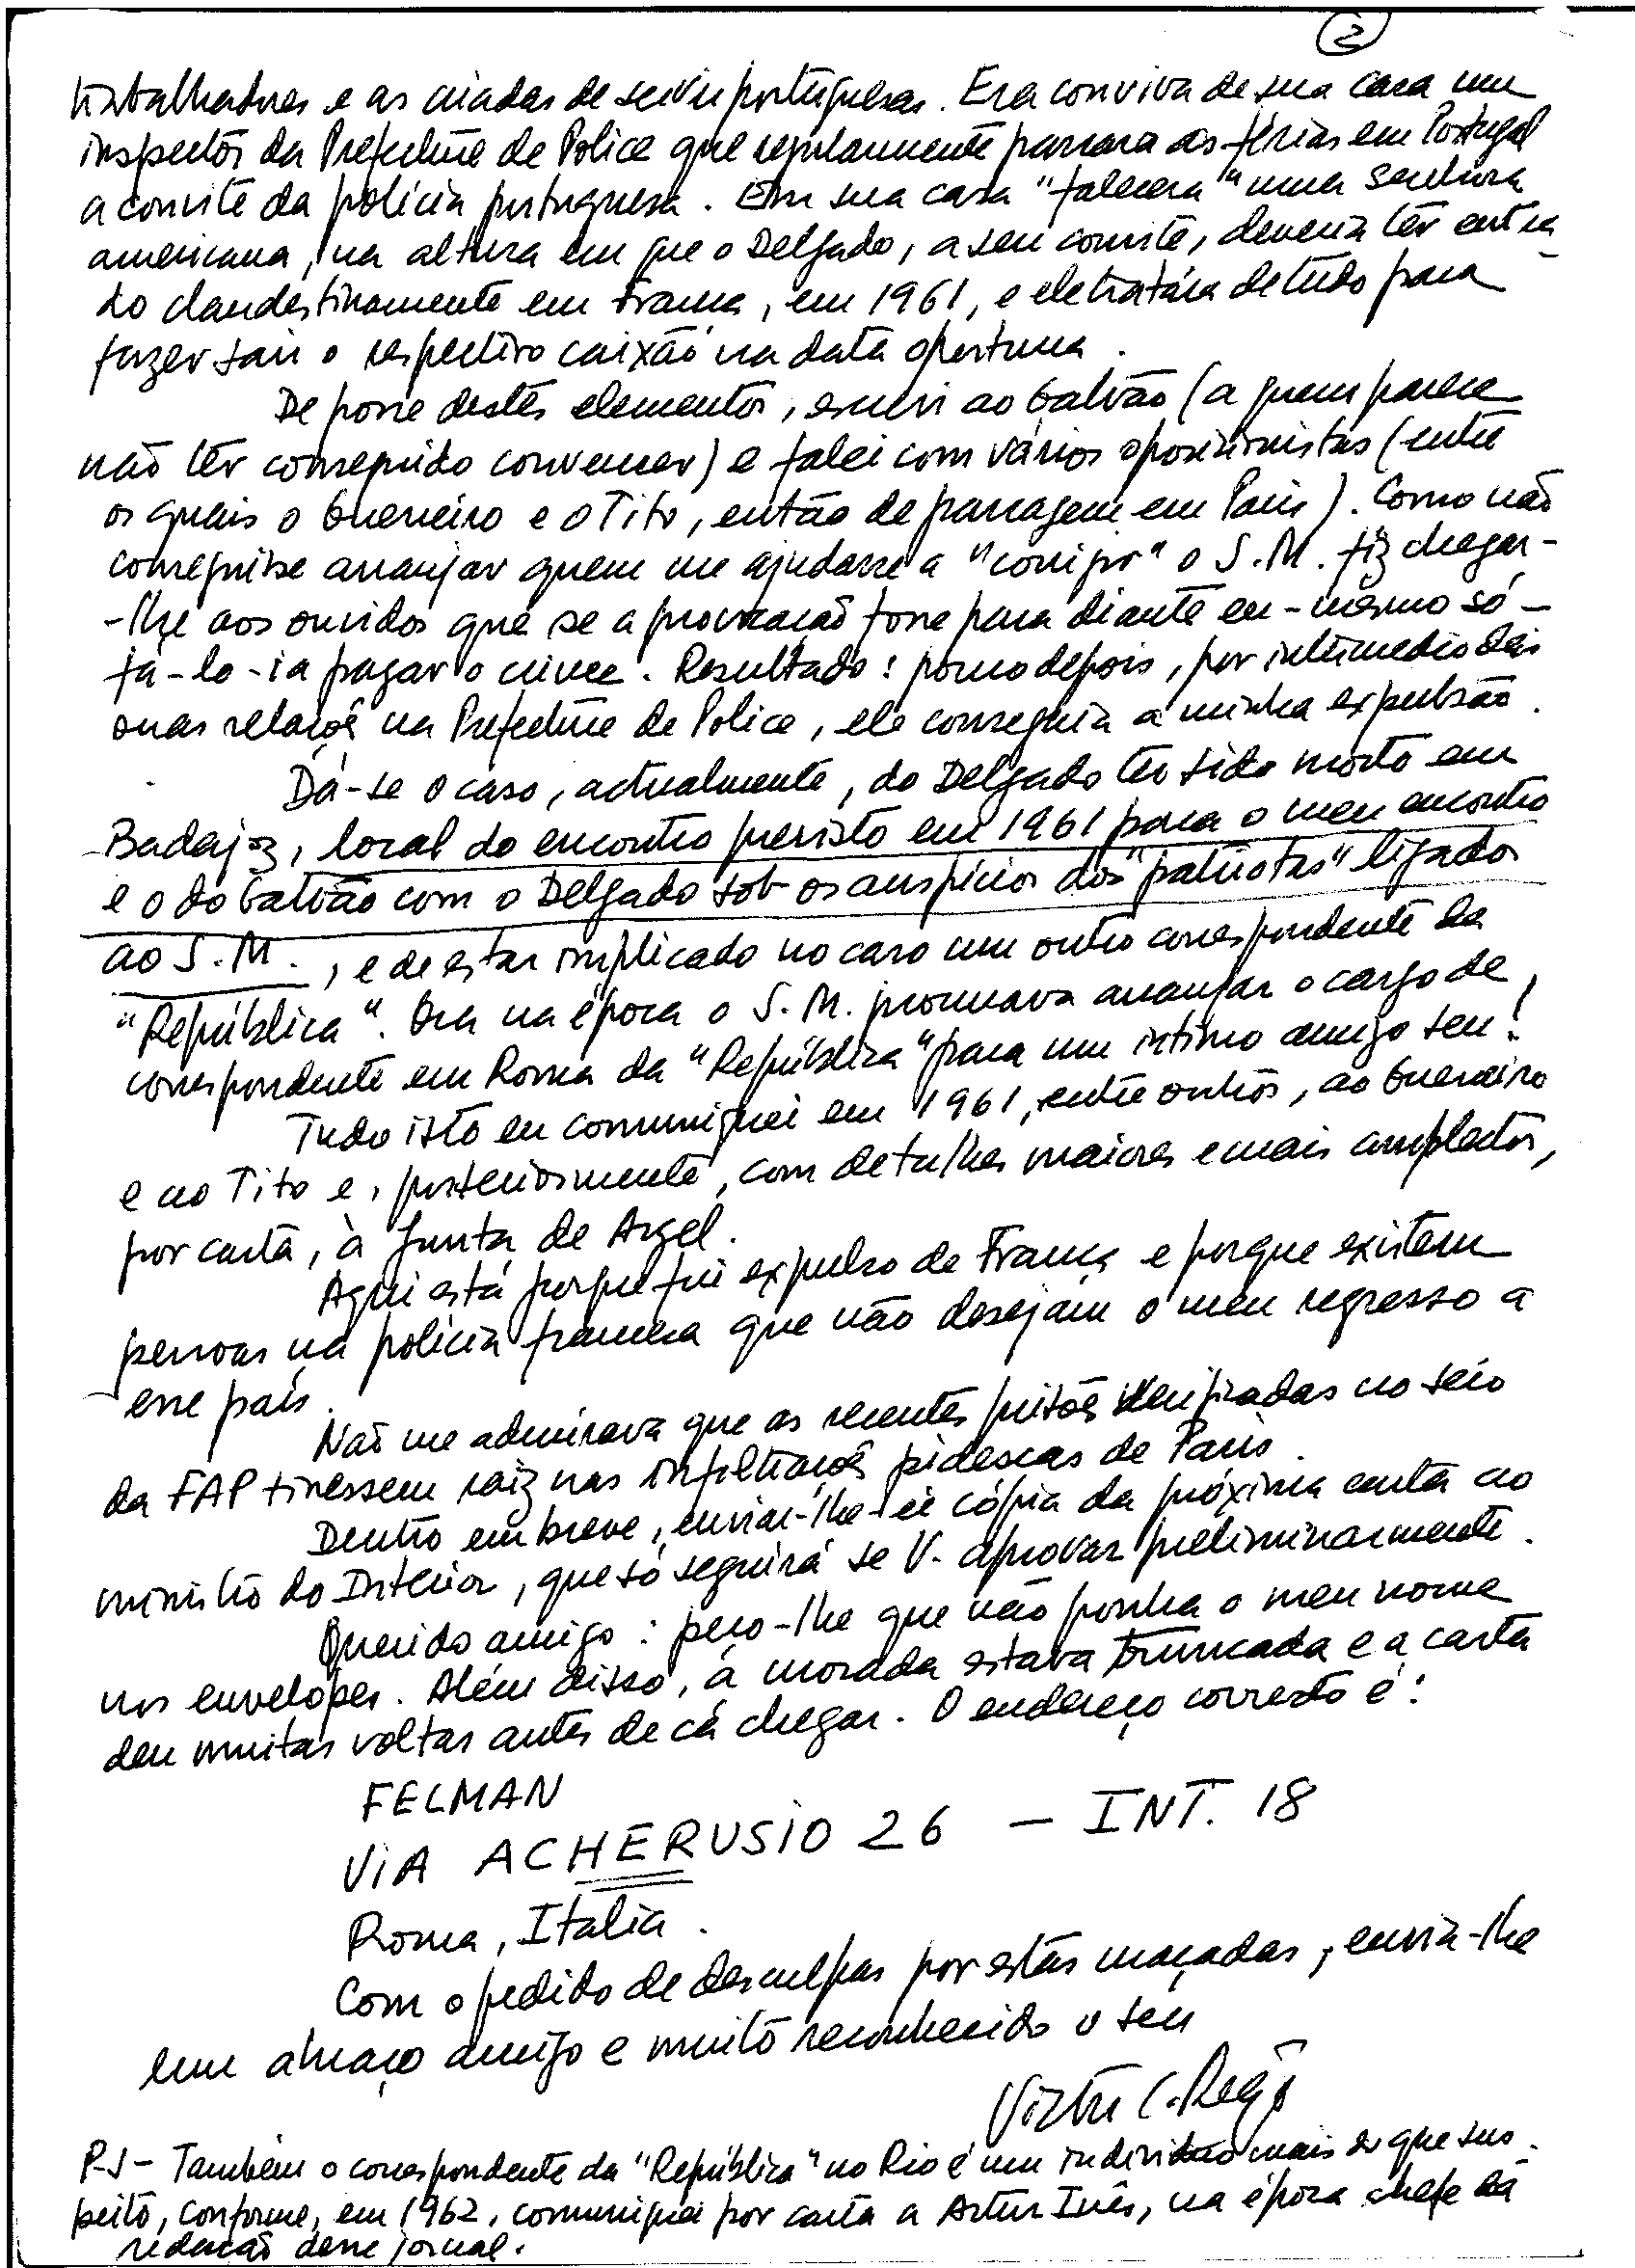 2
trabalhadores e as criadas de servir portuguesas. Era conviva de sua casa um
inspector da Prefecture de Police que regularmente passara as férias em Portugal
a convite da polícia portuguesa. Em sua casa "falecera" uma senhora
americana, na altura em que o Delgado, a seu convite, deveria ter entra-
do clandestinamente em França, em 1961, e ele tratára de tudo para
fazer sair o respectivo caixão na data oportuna.
De posse destes elementos, escrevi ao Galvão (a quem parece
não ter conseguido convencer) e falei com vários oposicionistas (entre
os quais o Guerreiro e o Tito, então de passagem em Paris). Como não
conseguisse arranjar quem me ajudasse a "corrigir" o S.M. fiz chegar-
-lhe aos ouvidos que se a provocação fosse para diante eu-mesmo só-
fá-lo-ia pagar o crime. Resultado: pouco depois, por intermédio das
suas relações na Prefecture de Police, ele conseguia a minha expulsão.
Dá-se o caso, actualmente, do Delgado ter sido morto em
Badajoz, local do encontro previsto em 1961 para o meu encontro
e o do Galvão com o Delgado sob os auspícios dos "patriotas" ligados
ao S.M., e de estar implicado no caso um outro correspondente da
"República". Ora na época o S.M. procurava arranjar o cargo de
correspondente em Roma da "República" para um íntimo amigo seu!
Tudo isto eu comuniquei em 1961, entre outros, ao Guerreiro
e ao Tito e, posteriormente, com detalhes maiores e mais completos,
por carta, à Junta de Argel.
Aqui está porque fui expulso de França e porque existem
pessoas na polícia francesa que não desejam o meu regresso a
esse país.
Não me admirava que as recentes prisões verificadas no seio
da FAP tivessem raiz nas infiltrações pidescas de Paris.
Dentro em breve, enviar-lhe-ei cópia da próxima carta ao
ministro do Interior, que só seguirá se V. aprovar preliminarmente.
Querido amigo: peço-lhe que não ponha o meu nome
nos envelopes. Além disso, a morada estava truncada e a carta
deu muitas voltas antes de cá chegar. O endereço correcto é:
FELMAN
VIA ACHERUSIO 26 - INT. 18
Roma, Italia.
Com o pedido de desculpas por estas maçadas, envia-lhe
um abraço amigo e muito reconhecido o seu
P.S - Também o correspondente da "República" no Rio é um individuo mais do que sus-
peito, conforme, em 1962, comuniquei por carta a Artur Inês, na época chefe da
redacção desse jornal.